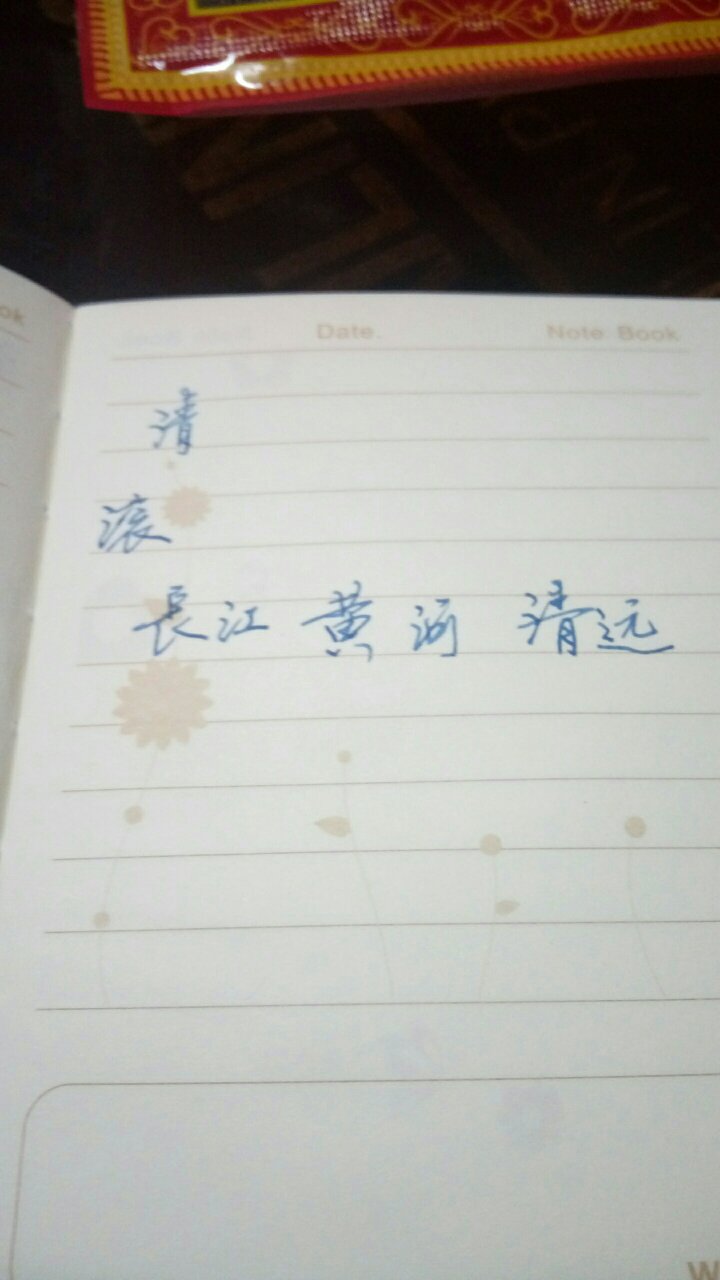 ok Date. Note Book
清
滚
長江 黄河 清远
W